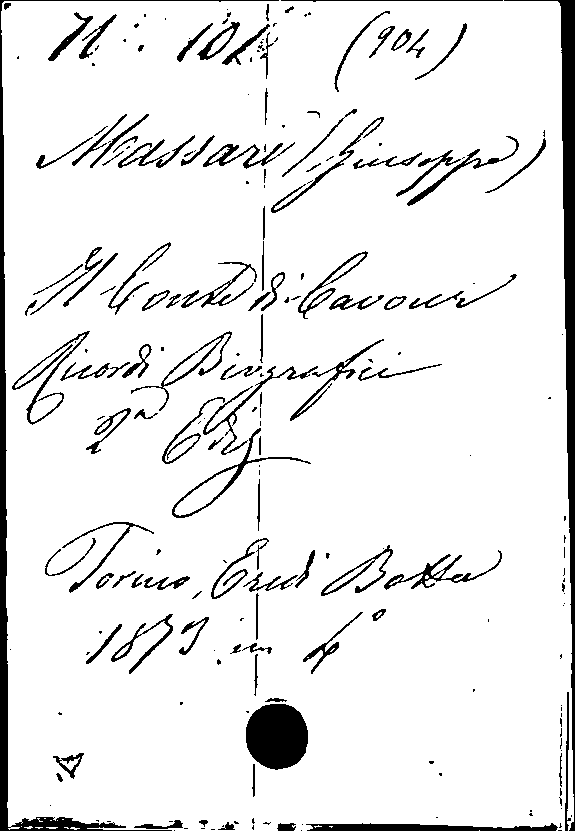 (904)
Massari (Giuseppe)
Il Conte di Cavour
Ricordi Biografici
2ª Ediz
Torino, Eredi Botta
1873 in 4°